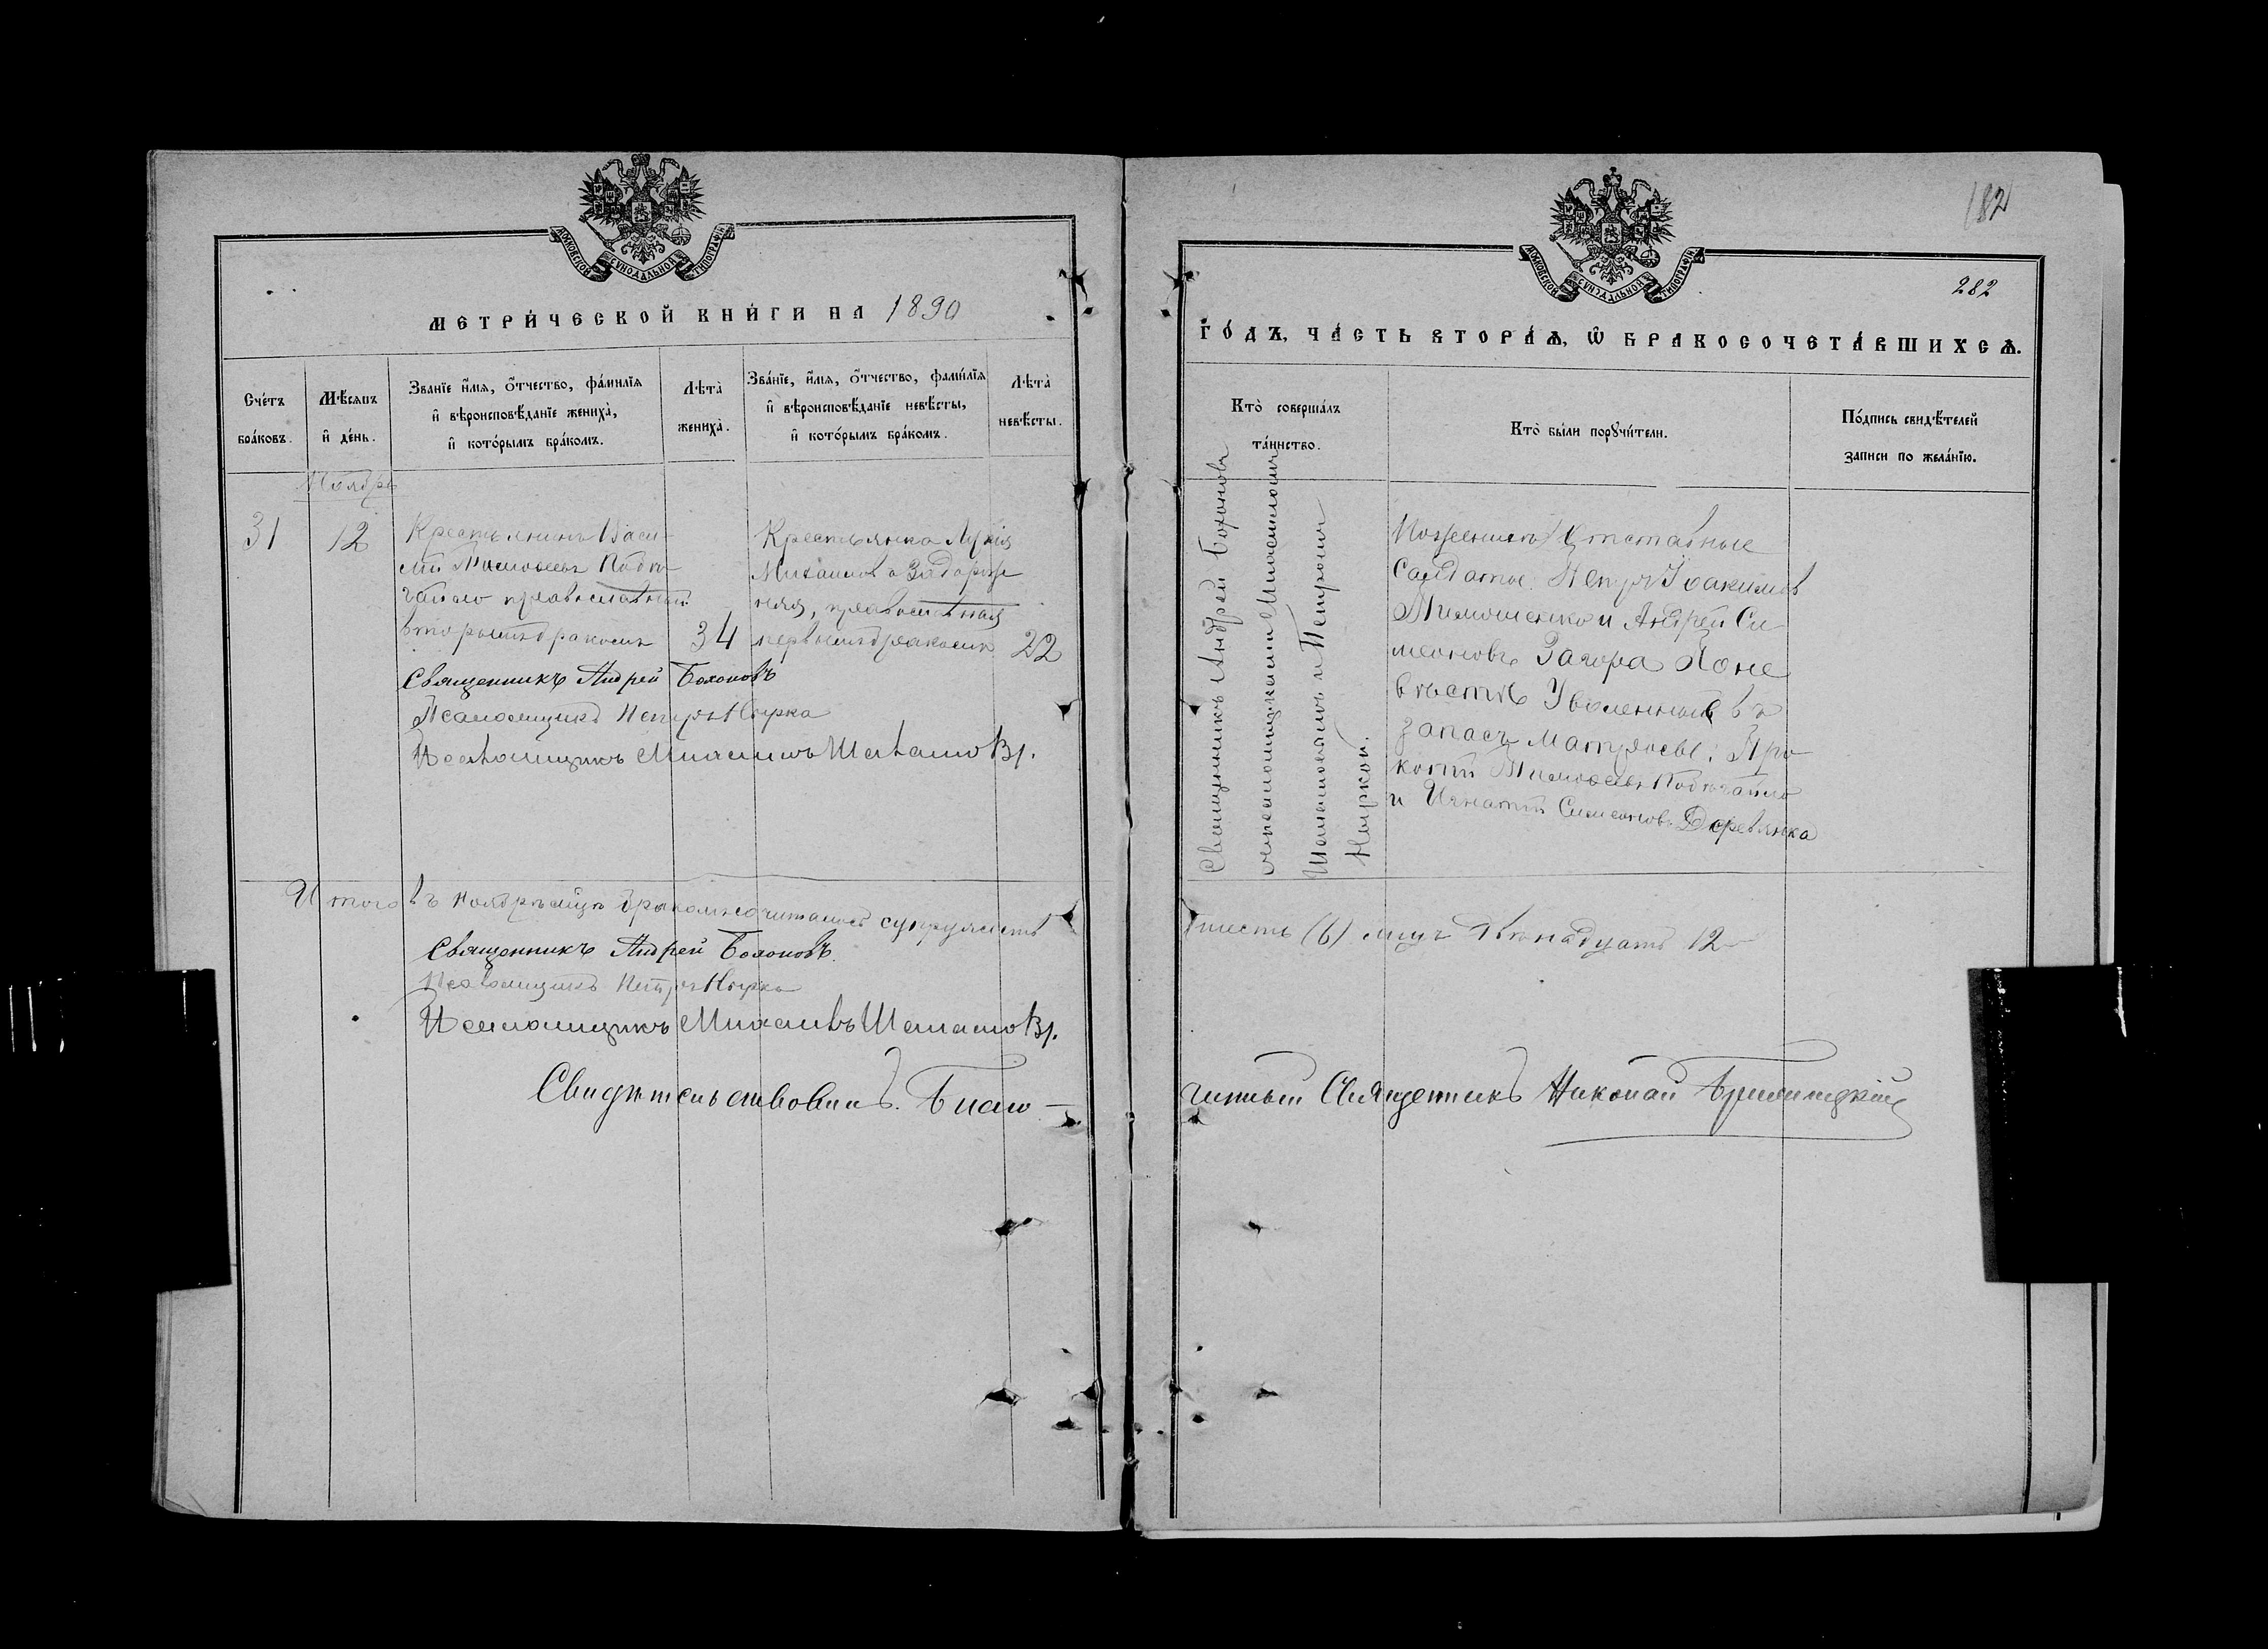 МОСКОВСКОЙ СѴНОДАЛЬНОЙ ТИПОГРАФІИ
МЕТРИ́ЧЕСКОЙ КНИ́ГИ НА 1890
Сче́тъ бра́ковъ.
Мѣ́сяцъ и҆ де́нь.
Зва́нїе и҆́мя, ѻ҆́тчество, фамі́лїя
и҆ вѣроисповѣ́данїе жениха̀,
и҆ кото́рымъ бра́комъ.
Лѣта̀ жениха̀.
Зва́нїе, и҆́мя, ѻ҆́тчество, фамі́лїя
и҆ вѣроисповѣ́данїе невѣ́сты,
и҆ кото́рымъ бра́комъ.
Лѣта̀ невѣ́сты.
Ноябрь
31
12
Крестьянинъ Васи-
лій Тимофеевъ Подко-
православный
вторымъ бракомъ
34
Крестьянка Лукія
Михаилова Задорож
няя, православная
первымъ бракомъ
22
Священникъ Андрей Болоновъ
Псаломщикъ Петръ Нырка
Псаломщикъ Михаилъ
Итого въ ноябрѣ мцѣ бракомъ сочиталось супружествъ
Священникъ Андрей Болоновъ.
Псаломщикъ Петръ Нырка
Псаломщикъ Михаилъ
Свидѣтельствовалъ. Благо—
МОСКОВСКОЙ СѴНОДАЛЬНОЙ ТИПОГРАФІИ
182
282
ГО́ДЪ, ЧА́СТЬ ВТОРА́Ѧ, Ѽ БРАКОСОЧЕТА́ВШИХСѦ.
Кто̀ соверша́лъ
та́инство.
Кто̀ бы́ли порꙋчи́тели.
По́дпись свидѣ́телей
записи по жела́нїю.
Священникъ Андрей Болоновъ
съ псаломщиками Михаиломъ
и Петромъ
Ныркой.
По женихѣ Отставные
Салдаты: Петръ Іоакимовъ
Тимошенко и Андрей Си-
меоновъ Загора По не
вѣстѣ Уволенный въ
запасъ матросы: Про
копій Тимофеевъ
и Игнатій Симеоновъ Деревянка
шесть (6) лицъ двенадцать 12—
чинный Священникъ Николай